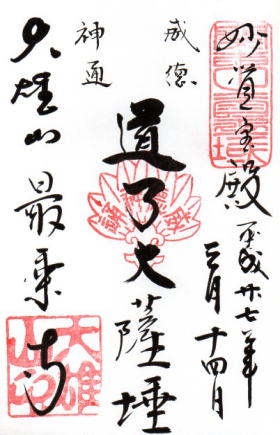 妙覚宝殿
平成廿七年
三月十四日
威徳
神通
道了大薩埵
大雄山最乗寺